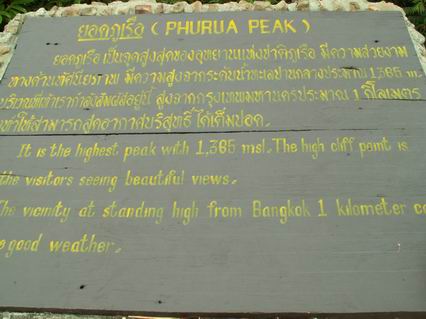 ยอดภูเรือ ( PHURUA PEAK )
ยอดภูเรือ เป็นจุดสูงสุดของอุทยานแห่งชาติภูเรือ มีความสวยงาม
ทางด้านทัศนียภาพ มีความสูงจากระดับน้ำทะเลปานกลางประมาณ 1,365 ม.
บริเวณที่เรากำลังสัมผัสอยู่นี้ สูงจากกรุงเทพมหานครประมาณ 1 กิโลเมตร
ทำให้สามารถสูดอากาศบริสุทธิ์ ได้เต็มปอด.
It is the highest peak with 1,365 msl. The high cliff point is
the visitors seeing beautiful views.
The vicinity at standing high from Bangkok 1 kilometer
good weather.